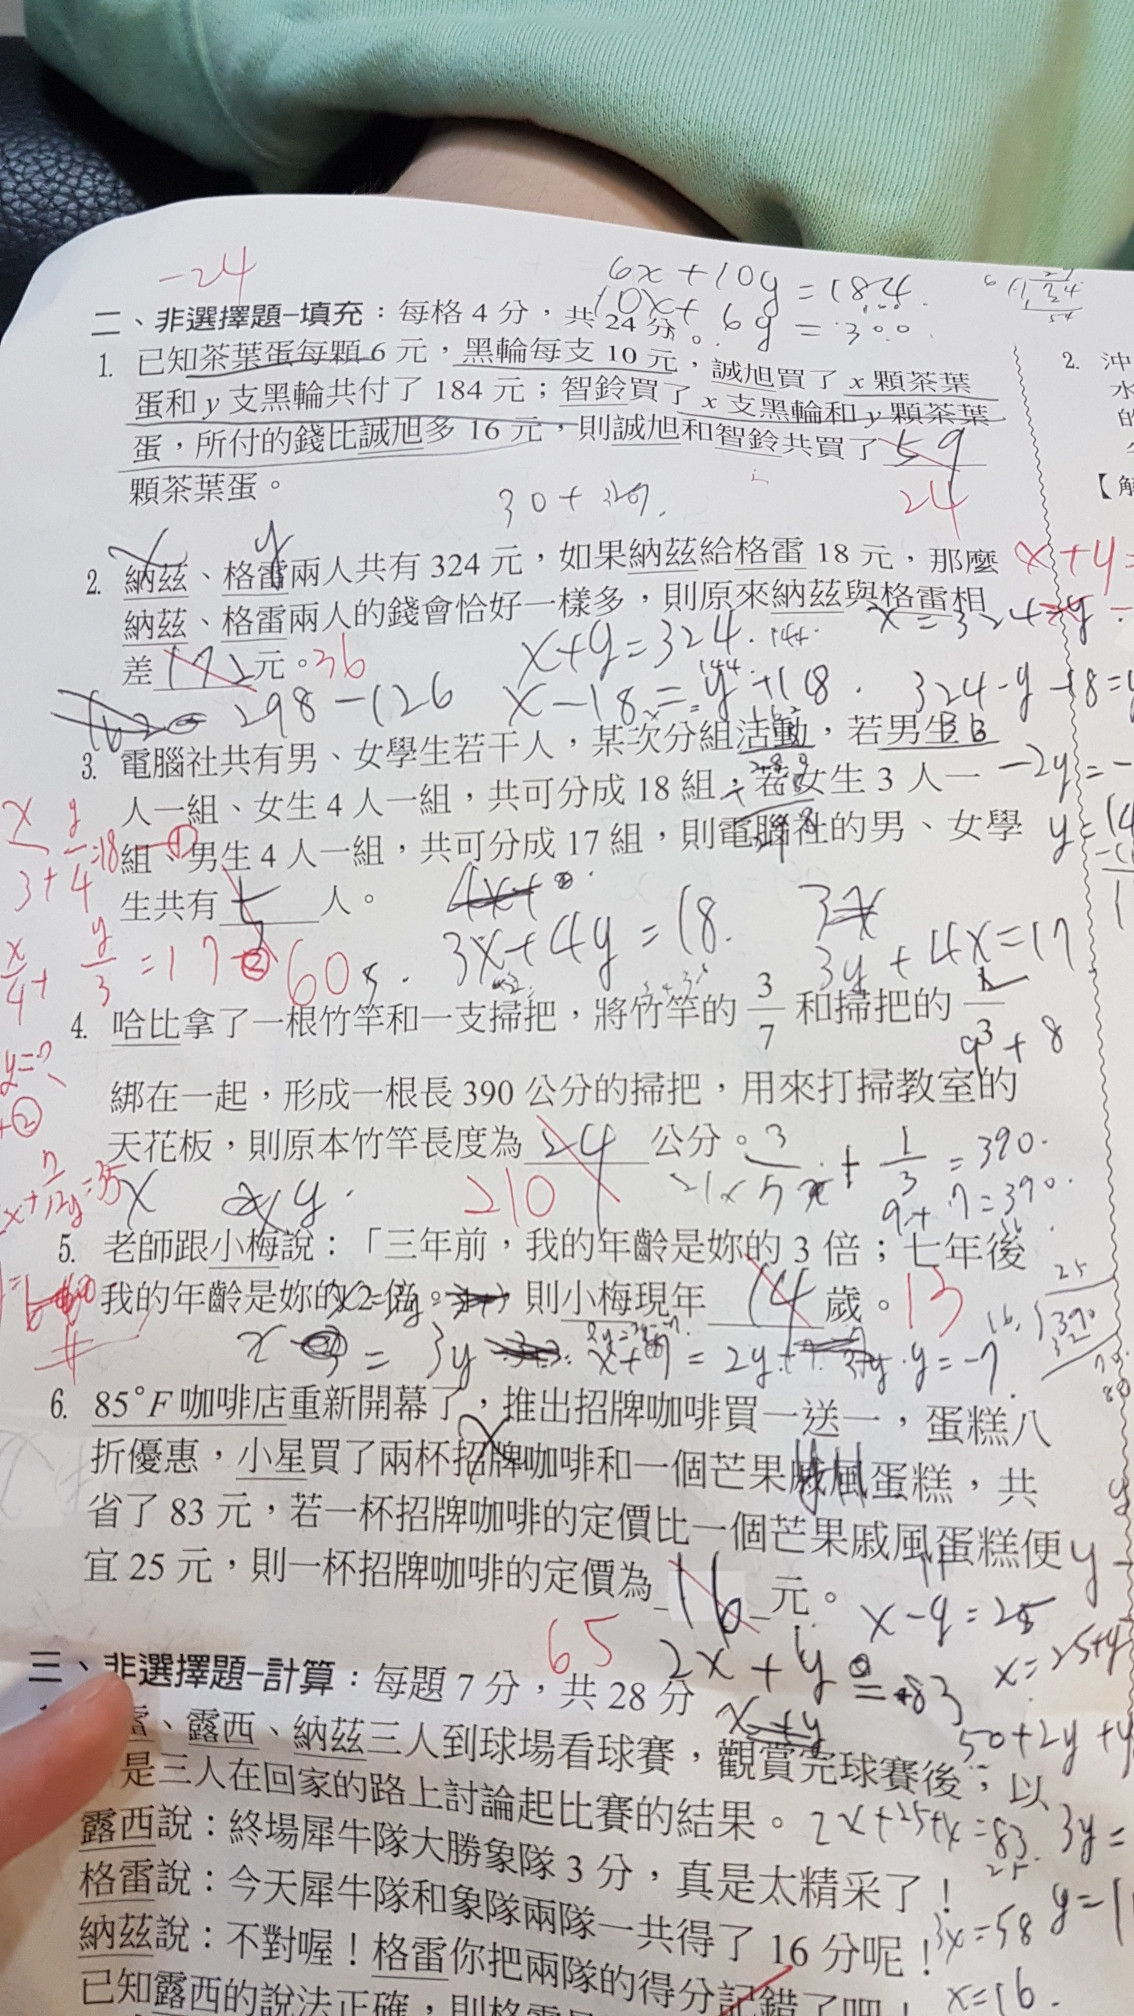 -24
6x+10y=184.
10x+6y=300.
二、非選擇題-填充：每格4分，共24分。
1. 已知茶葉蛋每顆6元，黑輪每支10元，誠旭買了x顆茶葉
蛋和y支黑輪共付了184元；智鈴買了x支黑輪和y顆茶葉
蛋，所付的錢比誠旭多16元，則誠旭和智鈴共買了59
顆茶葉蛋。
24
2. 沖
水
的
【解
x y
2. 納茲、格雷兩人共有324元，如果納茲給格雷18元，那麼
納茲、格雷兩人的錢會恰好一樣多，則原來納茲與格雷相
差172元。36
x+y=
x+y=324.
298-126
x-18=y+18.
324-y-18=y
-2y=-
3. 電腦社共有男、女學生若干人，某次分組活動，若男生3
人一組、女生4人一組，共可分成18組；若女生3人一
組、男生4人一組，共可分成17組，則電腦社的男、女學
生共有5人。
x/3+y/4=18 ①
x/4+y/3=17 ②
60
3x+4y=18.
3y+4x=17
4. 哈比拿了一根竹竿和一支掃把，將竹竿的3/7和掃把的1/3
綁在一起，形成一根長390公分的掃把，用來打掃教室的
天花板，則原本竹竿長度為24公分。
210
9+7=390.
5. 老師跟小梅說：「三年前，我的年齡是妳的3倍；七年後
我的年齡是妳的2倍。」則小梅現年14歲。13
x = 3y
x+7=2y+7
y=-7
6. 85°F咖啡店重新開幕了，推出招牌咖啡買一送一，蛋糕八
折優惠，小星買了兩杯招牌咖啡和一個芒果戚風蛋糕，共
省了83元，若一杯招牌咖啡的定價比一個芒果戚風蛋糕便
宜25元，則一杯招牌咖啡的定價為16元。
65
x-y=25
x=25+y
2x+y=83
50+2y+y
2x+25+x=83
3y=
3x=58
x=16.
三、非選擇題-計算：每題7分，共28分
雷、露西、納茲三人到球場看球賽，觀賞完球賽後，以
是三人在回家的路上討論起比賽的結果。
露西說：終場犀牛隊大勝象隊3分，真是太精采了！
格雷說：今天犀牛隊和象隊兩隊一共得了16分呢！
納茲說：不對喔！格雷你把兩隊的得分記錯了吧！
已知露西的說法正確，則格雷